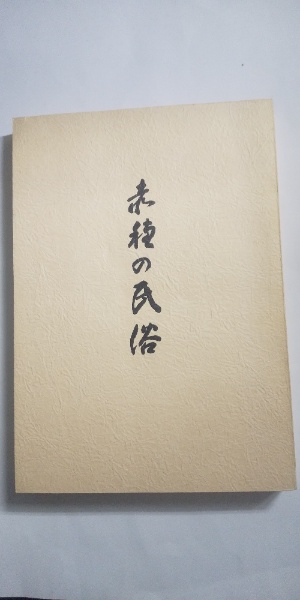 赤穂の民俗